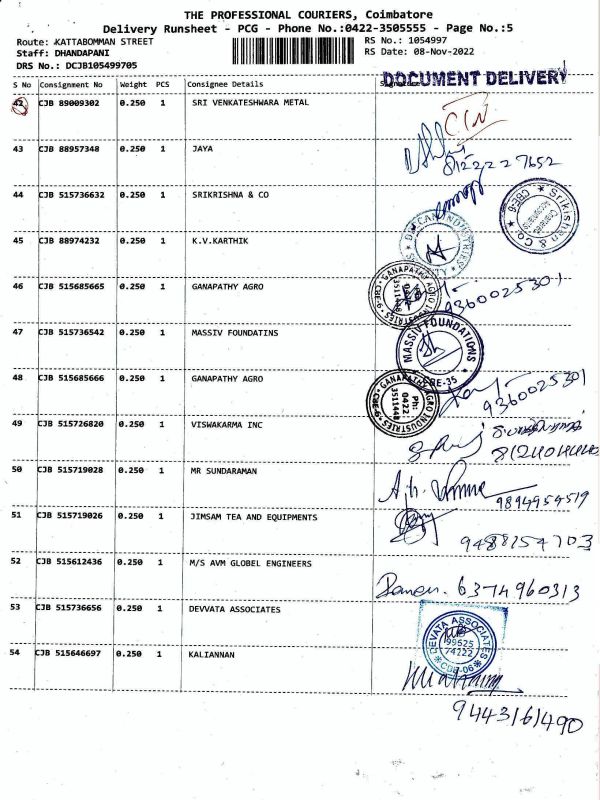 THE PROFESSIONAL COURIERS, Coimbatore
Delivery Runsheet - PCG - Phone No.:0422-3505555 - Page No.:5
Route: KATTABOMMAN STREET
RS No.: 1054997
Staff: DHANDAPANI
RS Date: 08-Nov-2022
DRS No.: DCJB105499705
DOCUMENT DELIVERY
S No Consignment No Weight PCS Consignee Details Signature
42 CJB 89009302 0.250 1 SRI VENKATESHWARA METAL
43 CJB 88957348 0.250 1 JAYA
8122227652
44 CJB 515736632 0.250 1 SRIKRISHNA & CO
Srikishna & Co. CBE-6
45 CJB 88974232 0.250 1 K.V.KARTHIK
46 CJB 515685665 0.250 1 GANAPATHY AGRO
GANAPATHY AGRO INDUSTRIES CBE-9
0422
3511448
9360025301
47 CJB 515736542 0.250 1 MASSIV FOUNDATINS
MASSIV FOUNDATIONS
CBE-35
48 CJB 515685666 0.250 1 GANAPATHY AGRO
GANAPATHY AGRO INDUSTRIES CBE-9
Ph:
0422
3511448
9360025301
49 CJB 515726820 0.250 1 VISWAKARMA INC
50 CJB 515719028 0.250 1 MR SUNDARAMAN
9894954519
51 CJB 515719026 0.250 1 JIMSAM TEA AND EQUIPMENTS
9488154703
52 CJB 515612436 0.250 1 M/S AVM GLOBEL ENGINEERS
6374960313
53 CJB 515736656 0.250 1 DEVVATA ASSOCIATES
DEVATA ASSOCIATES
99625
74222
CBE-06
54 CJB 515646697 0.250 1 KALIANNAN
9443161490